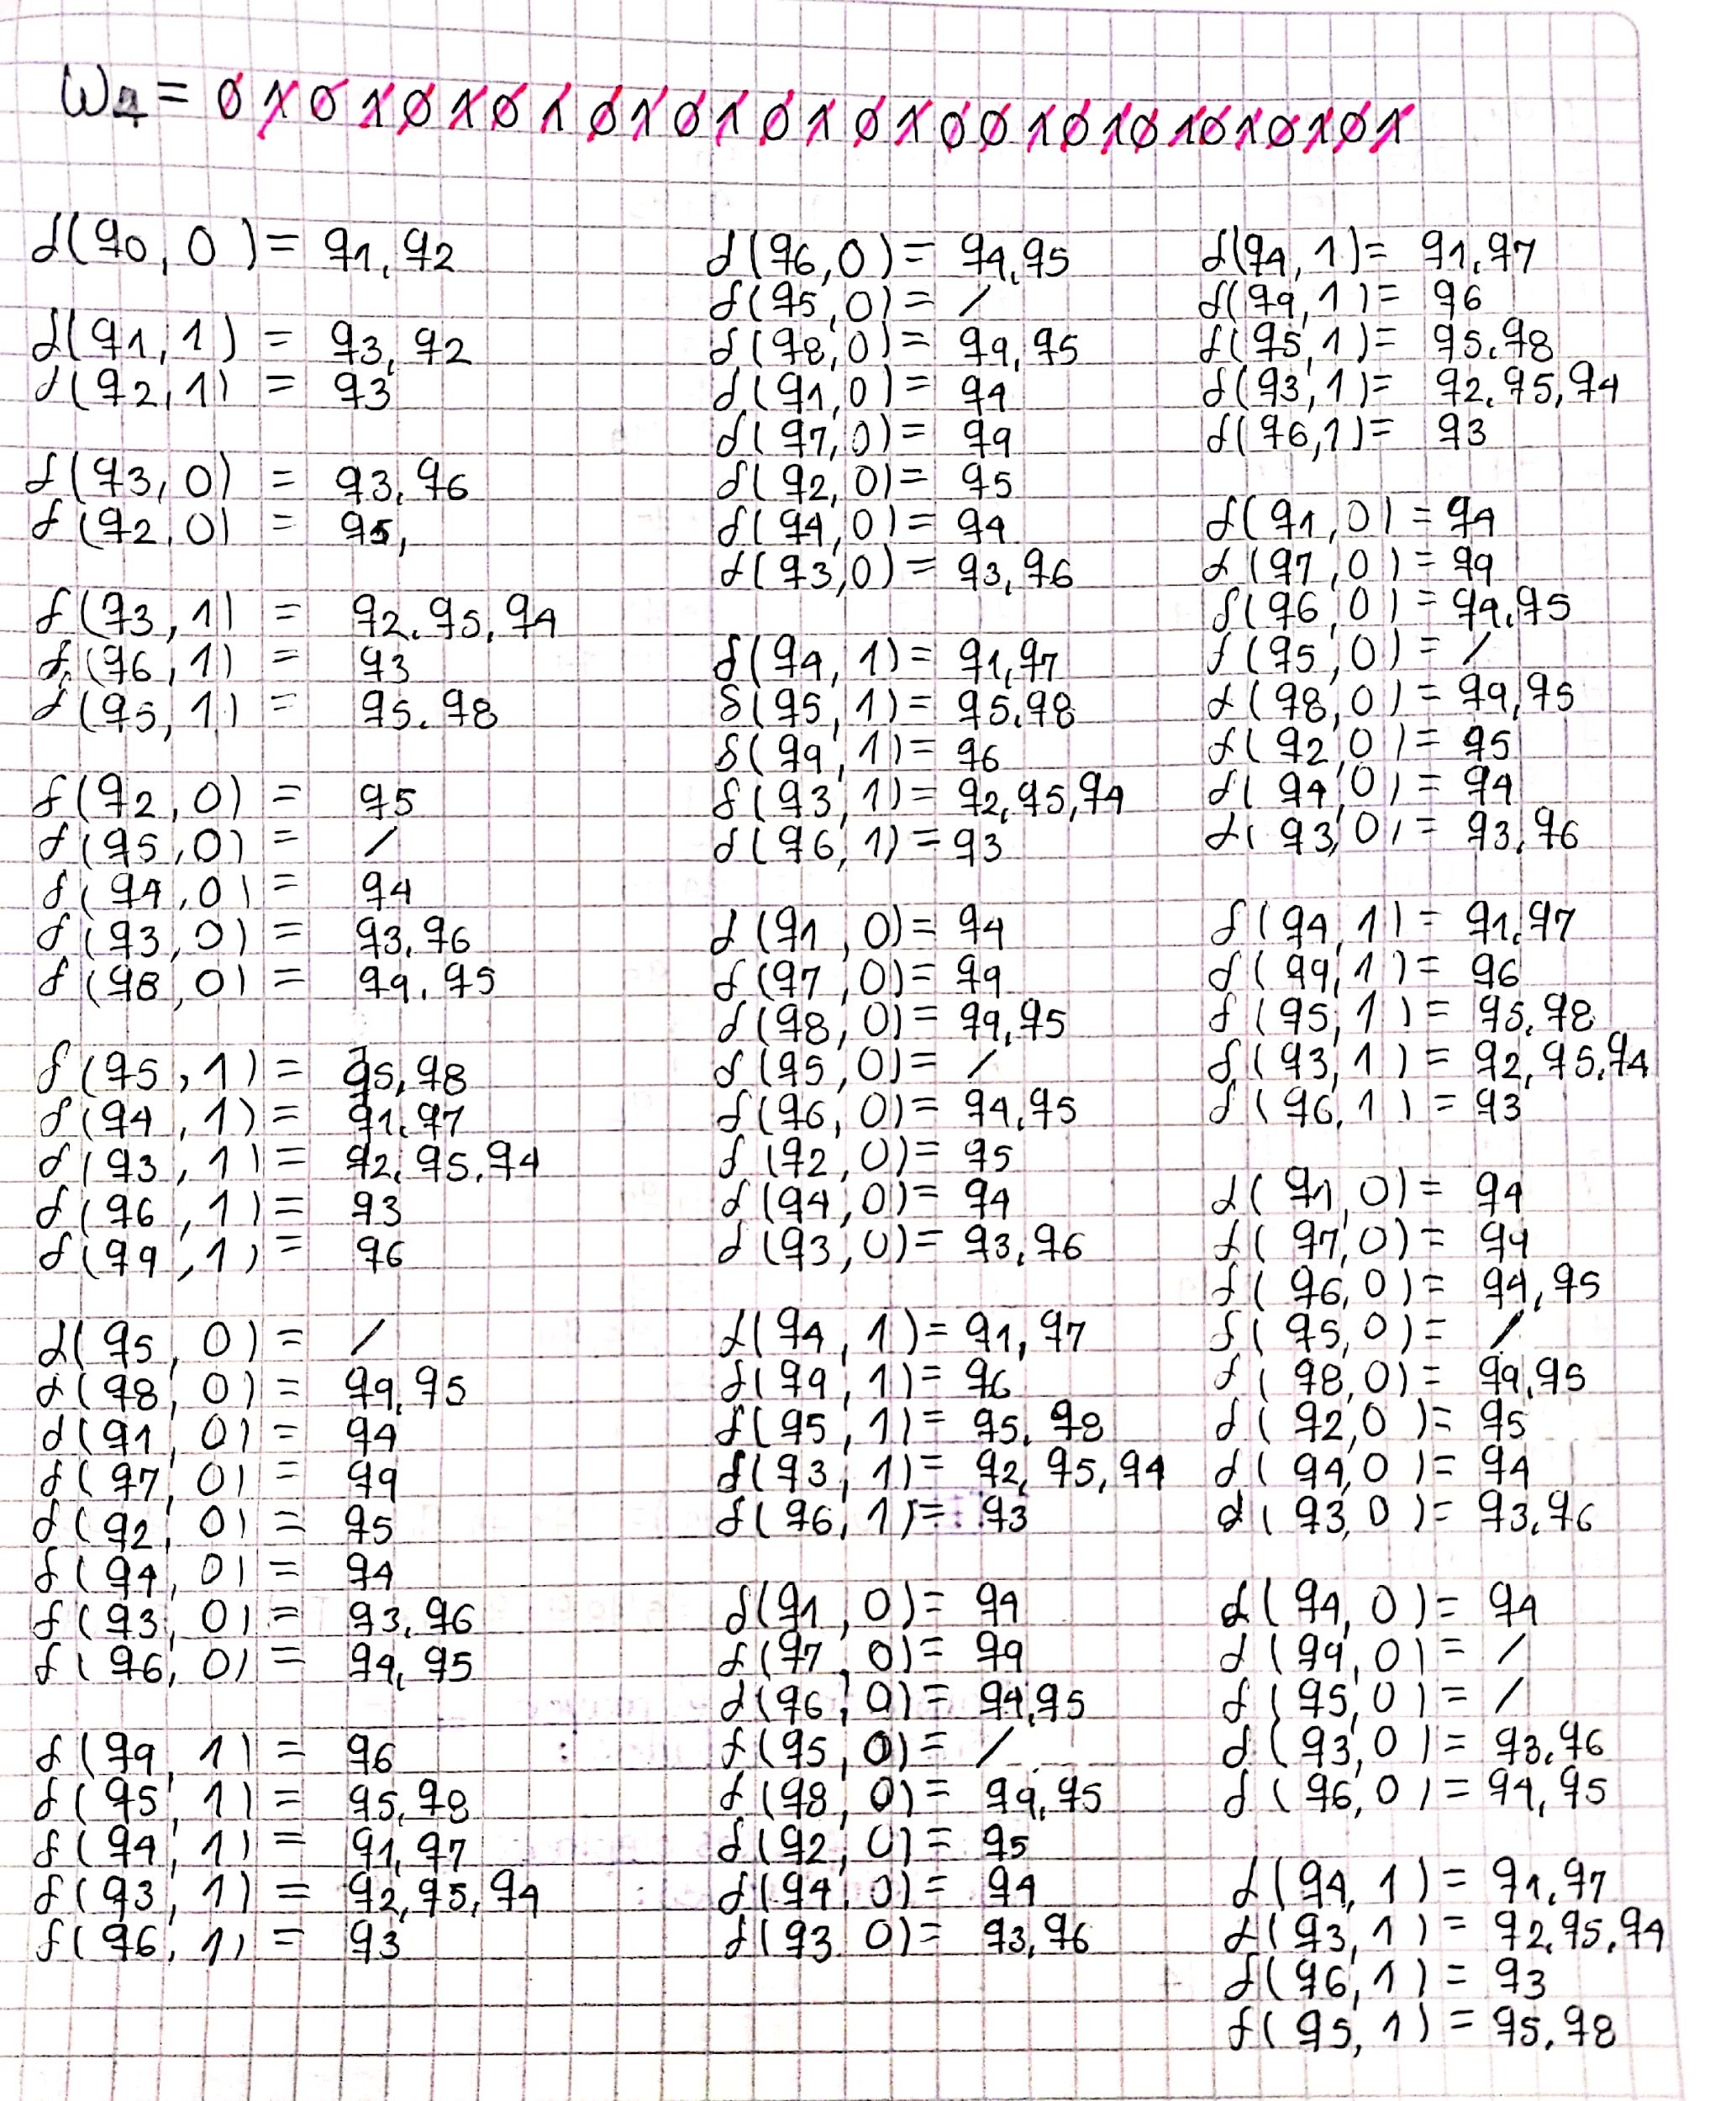 ω4 = 01010101010101010010101010101
δ(q0,0) = q1,q2
δ(q1,1) = q3,q2
δ(q2,1) = q3
δ(q3,0) = q3,q6
δ(q2,0) = q5,
δ(q3,1) = q2,q5,q4
δ(q6,1) = q3
δ(q5,1) = q5,q8
δ(q2,0) = q5
δ(q5,0) = /
δ(q4,0) = q4
δ(q3,0) = q3,q6
δ(q8,0) = q9,q5
δ(q5,1) = q5,q8
δ(q4,1) = q1,q7
δ(q3,1) = q2,q5,q4
δ(q6,1) = q3
δ(q9,1) = q6
δ(q5,0) = /
δ(q8,0) = q9,q5
δ(q1,0) = q4
δ(q7,0) = q9
δ(q2,0) = q5
δ(q4,0) = q4
δ(q3,0) = q3,q6
δ(q6,0) = q4,q5
δ(q9,1) = q6
δ(q5,1) = q5,q8
δ(q4,1) = q1,q7
δ(q3,1) = q2,q5,q4
δ(q6,1) = q3
δ(q6,0) = q4,q5
δ(q5,0) = /
δ(q8,0) = q9,q5
δ(q1,0) = q4
δ(q7,0) = q9
δ(q2,0) = q5
δ(q4,0) = q4
δ(q3,0) = q3,q6
δ(q4,1) = q1,q7
δ(q5,1) = q5,q8
δ(q9,1) = q6
δ(q3,1) = q2,q5,q4
δ(q6,1) = q3
δ(q1,0) = q4
δ(q7,0) = q9
δ(q8,0) = q9,q5
δ(q5,0) = /
δ(q6,0) = q4,q5
δ(q2,0) = q5
δ(q4,0) = q4
δ(q3,0) = q3,q6
δ(q4,1) = q1,q7
δ(q9,1) = q6
δ(q5,1) = q5,q8
δ(q3,1) = q2,q5,q4
δ(q6,1) = q3
δ(q1,0) = q4
δ(q7,0) = q9
δ(q6,0) = q4,q5
δ(q5,0) = /
δ(q8,0) = q9,q5
δ(q2,0) = q5
δ(q4,0) = q4
δ(q3,0) = q3,q6
δ(q4,1) = q1,q7
δ(q9,1) = q6
δ(q5,1) = q5,q8
δ(q3,1) = q2,q5,q4
δ(q6,1) = q3
δ(q1,0) = q4
δ(q7,0) = q9
δ(q6,0) = q4,q5
δ(q5,0) = /
δ(q8,0) = q9,q5
δ(q2,0) = q5
δ(q4,0) = q4
δ(q3,0) = q3,q6
δ(q4,1) = q1,q7
δ(q9,1) = q6
δ(q5,1) = q5,q8
δ(q3,1) = q2,q5,q4
δ(q6,1) = q3
δ(q1,0) = q4
δ(q7,0) = q9
δ(q6,0) = q4,q5
δ(q5,0) = /
δ(q8,0) = q9,q5
δ(q2,0) = q5
δ(q4,0) = q4
δ(q3,0) = q3,q6
δ(q4,0) = q4
δ(q9,0) = /
δ(q5,0) = /
δ(q3,0) = q3,q6
δ(q6,0) = q4,q5
δ(q4,1) = q1,q7
δ(q3,1) = q2,q5,q4
δ(q6,1) = q3
δ(q5,1) = q5,q8